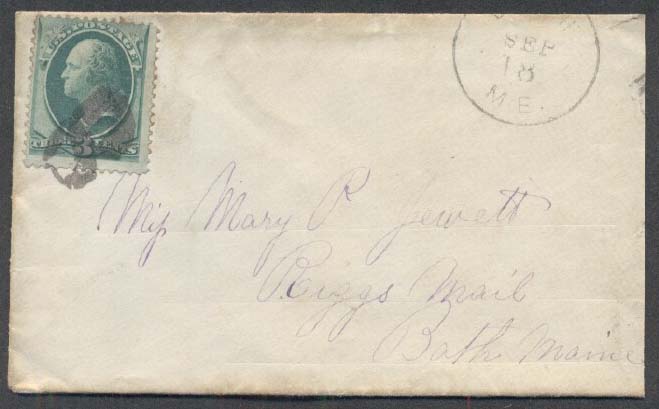 U.S. POSTAGE
THREE 3 CENTS
SEP
18
ME.
Miss Mary P. Jewett
Riggs Mail
Bath Maine